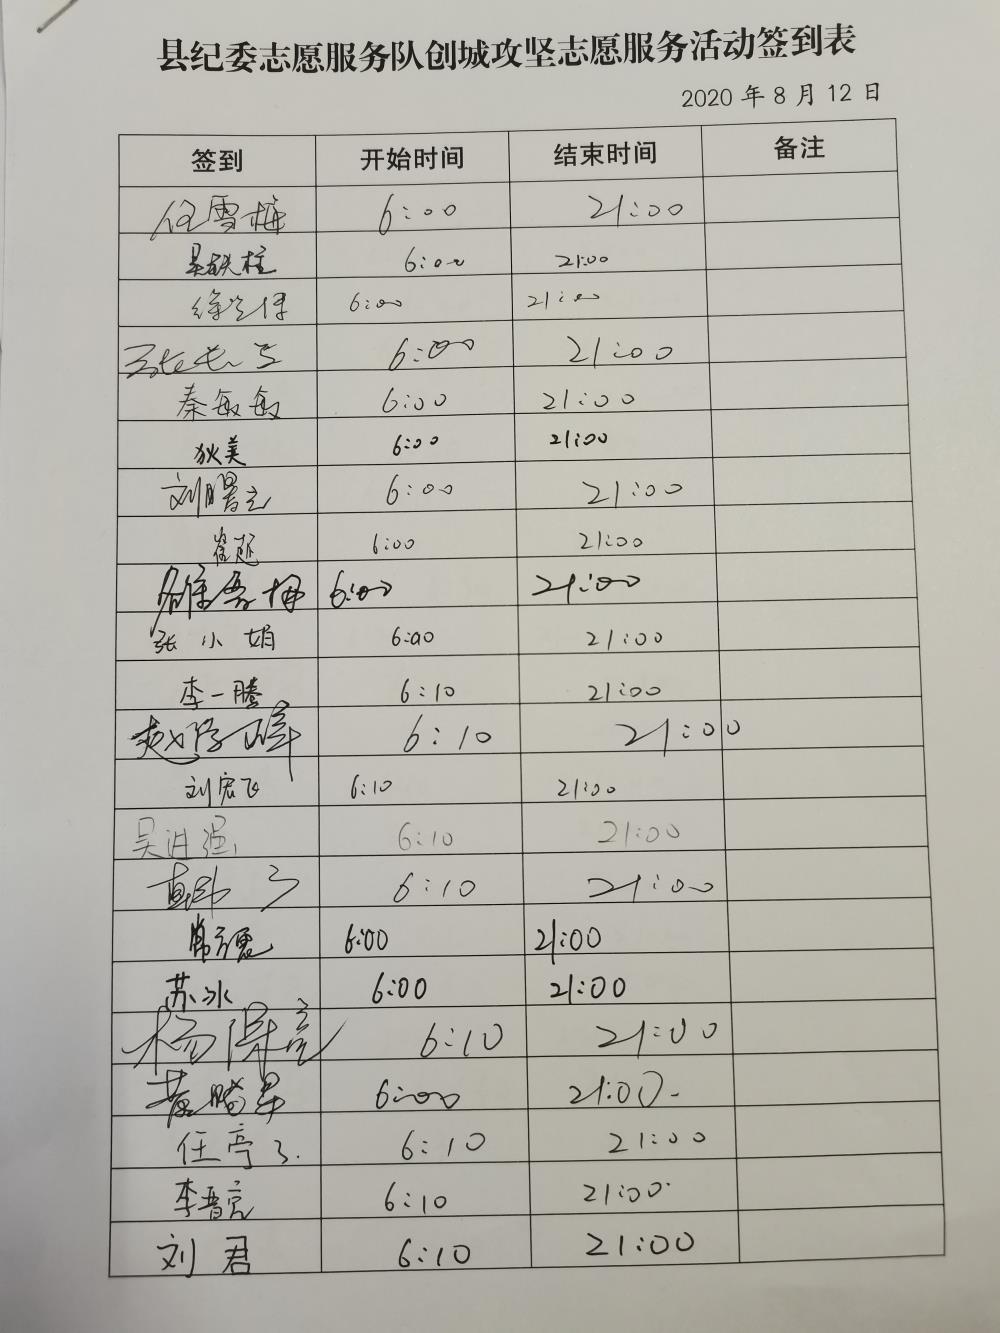 县纪委志愿服务队创城攻坚志愿服务活动签到表
2020 年 8 月 12 日
签到 开始时间 结束时间 备注
任雪梅 6:00 21:00
吴铁柱 6:00 21:00
徐 6:00 21:00
6:00 21:00
秦敏敏 6:00 21:00
狄美 6:00 21:00
刘曙 6:00 21:00
崔延 6:00 21:00
6:00 21:00
张小娟 6:00 21:00
李一腾 6:10 21:00
赵 6:10 21:00
刘宏飞 6:10 21:00
吴进强 6:10 21:00
6:10 21:00
6:00 21:00
苏冰 6:00 21:00
杨 6:10 21:00
黄 6:00 21:00
任亭 6:10 21:00
李晋亮 6:10 21:00
刘君 6:10 21:00